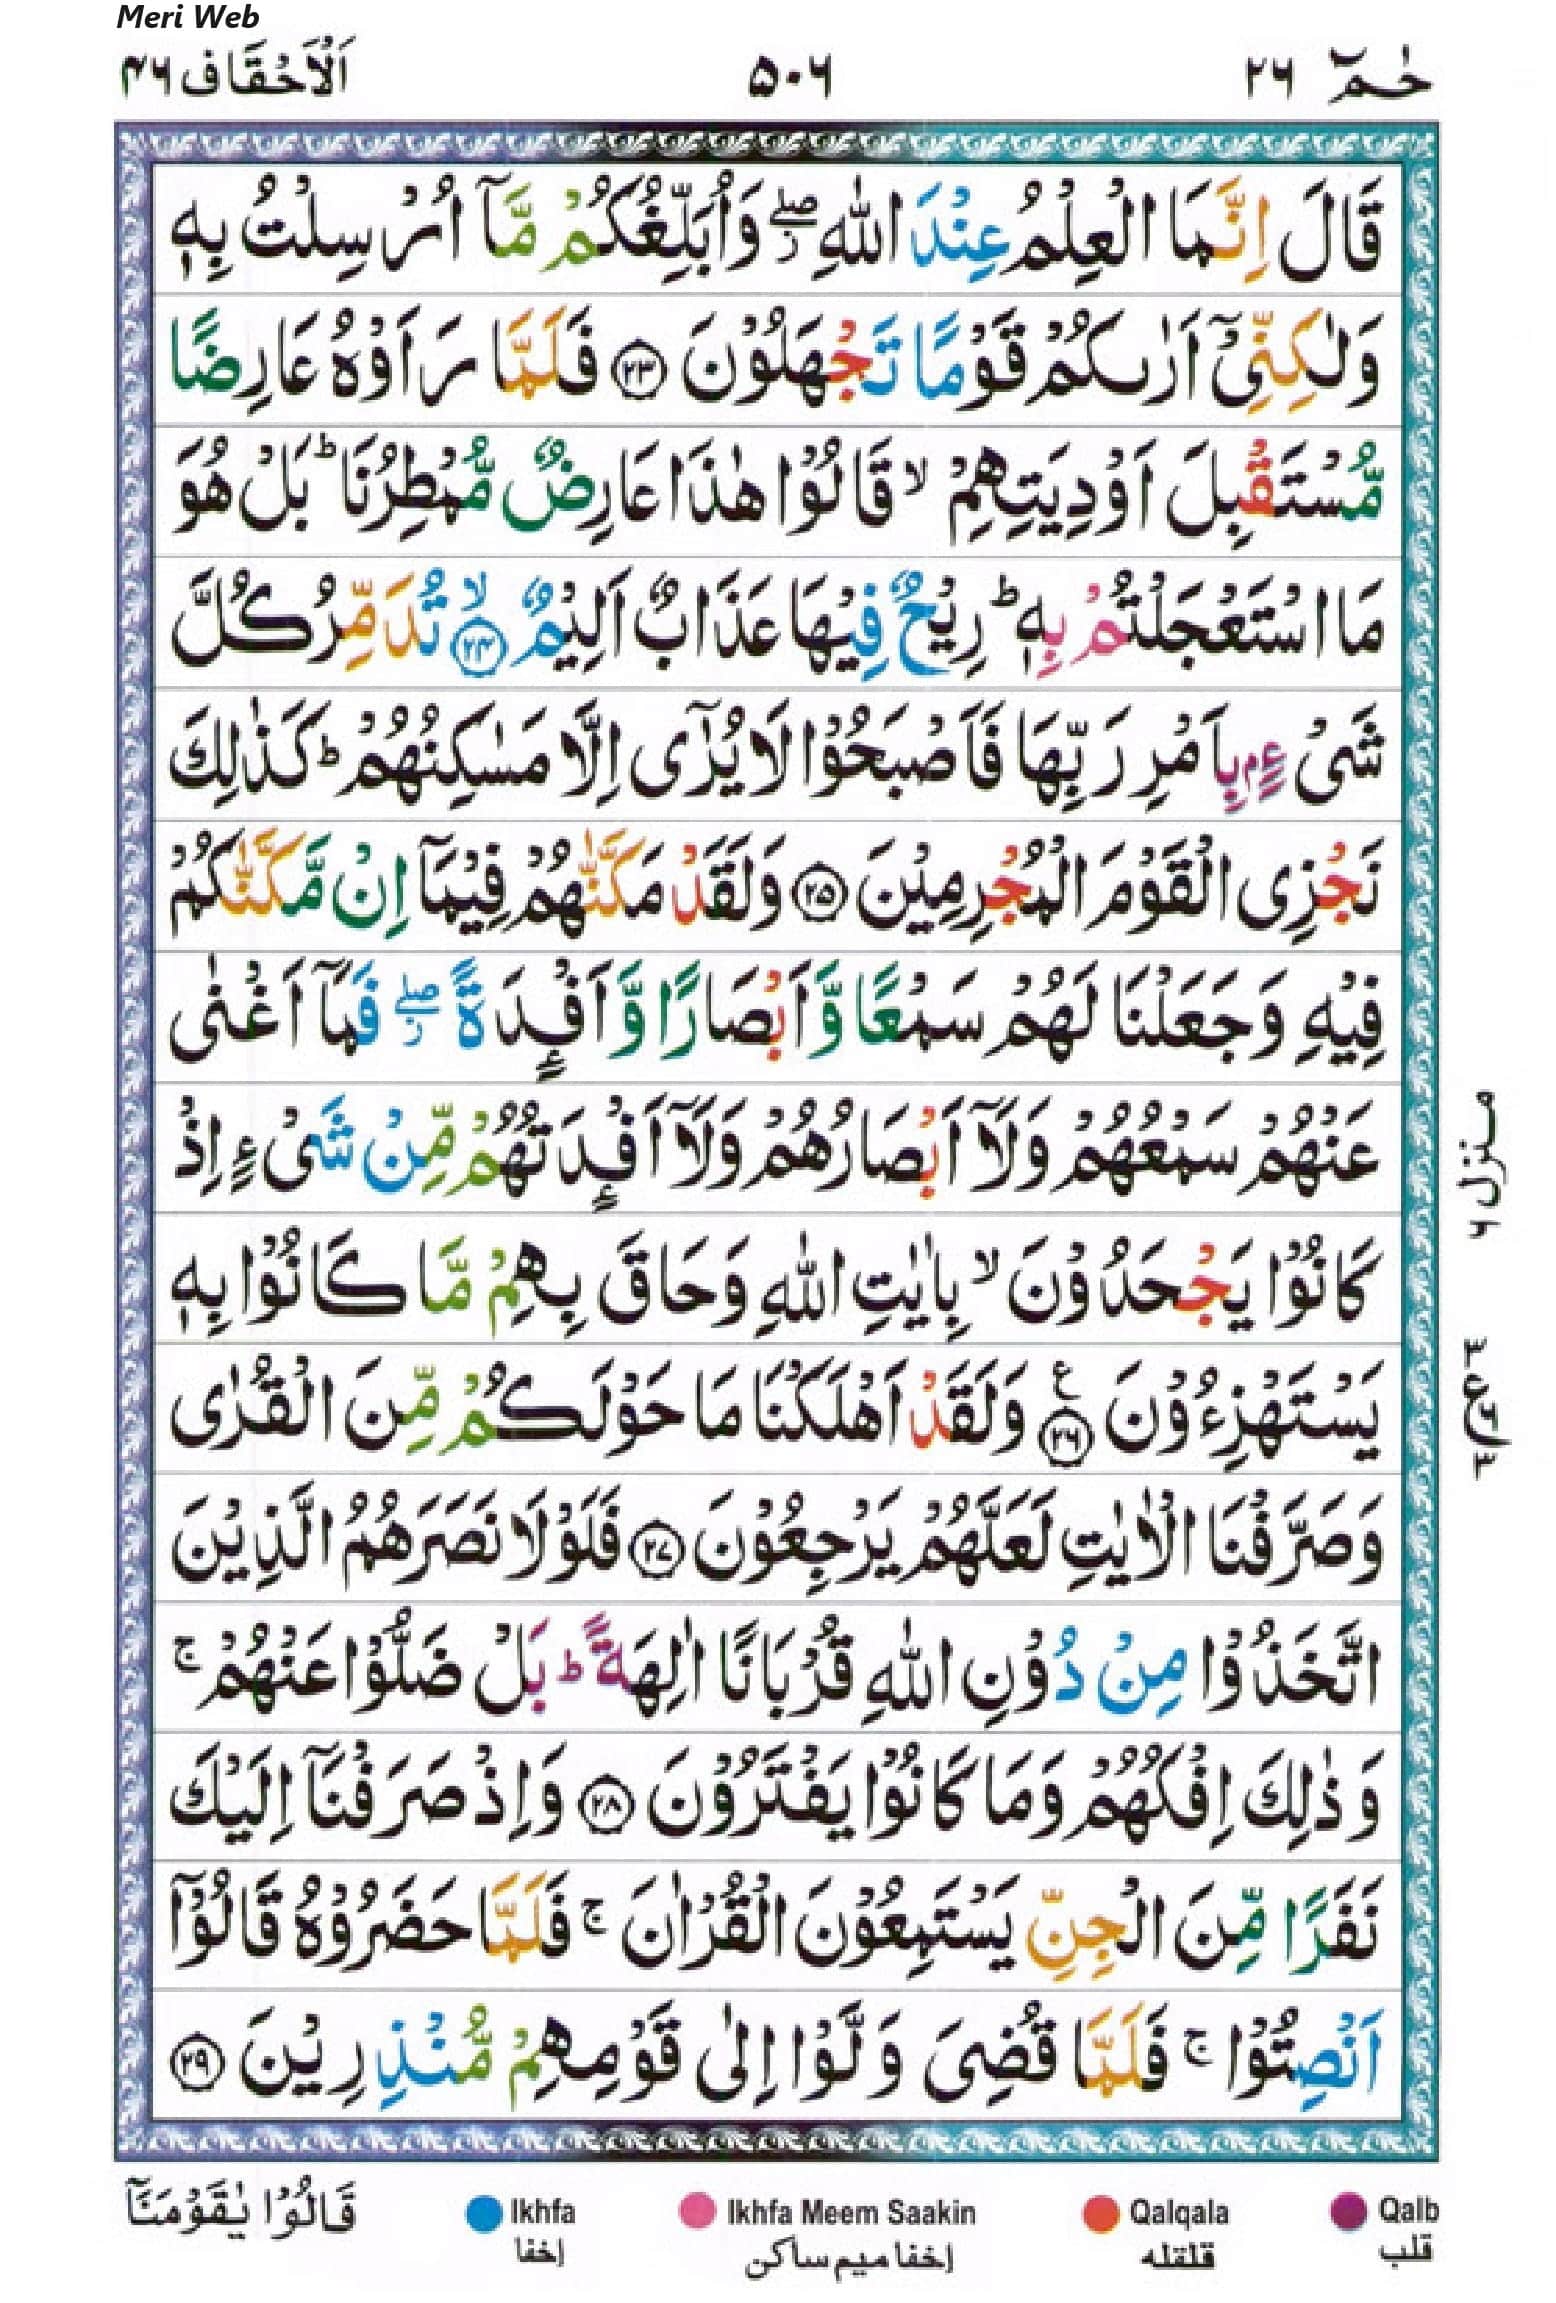 Meri Web
حٰمٓ ٢٦ ٥٠٦ اَلْاَحْقَاف ٤٦
قَالَ اِنَّمَا الْعِلْمُ عِنْدَ اللّٰهِ ۖ وَاُبَلِّغُكُمْ مَّاۤ اُرْسِلْتُ بِهٖ
وَلٰكِنِّىْۤ اَرٰٮكُمْ قَوْمًا تَجْهَلُوْنَ ﴿۲۳﴾ فَلَمَّا رَاَوْهُ عَارِضًا
مُّسْتَقْبِلَ اَوْدِيَتِهِمْ ۙ قَالُوْا هٰذَا عَارِضٌ مُّمْطِرُنَا ؕ بَلْ هُوَ
مَا اسْتَعْجَلْتُمْ بِهٖ ؕ رِيْحٌ فِيْهَا عَذَابٌ اَلِيْمٌ ۙ ﴿۲۴﴾ تُدَمِّرُ كُلَّ
شَىْءٍۢ بِاَمْرِ رَبِّهَا فَاَصْبَحُوْا لَا يُرٰٓى اِلَّا مَسٰكِنُهُمْ ؕ كَذٰلِكَ
نَجْزِى الْقَوْمَ الْمُجْرِمِيْنَ ﴿۲۵﴾ وَلَقَدْ مَكَّنّٰهُمْ فِيْمَاۤ اِنْ مَّكَّنّٰكُمْ
فِيْهِ وَجَعَلْنَا لَهُمْ سَمْعًا وَّاَبْصَارًا وَّاَفْـِٕدَةً ۖ فَمَاۤ اَغْنٰى
عَنْهُمْ سَمْعُهُمْ وَلَاۤ اَبْصَارُهُمْ وَلَاۤ اَفْـِٕدَتُهُمْ مِّنْ شَىْءٍ اِذْ
كَانُوْا يَجْحَدُوْنَ ۙ بِاٰيٰتِ اللّٰهِ وَحَاقَ بِهِمْ مَّا كَانُوْا بِهٖ
يَسْتَهْزِءُوْنَ ﴿۲۶﴾ ع وَلَقَدْ اَهْلَكْنَا مَا حَوْلَكُمْ مِّنَ الْقُرٰى
وَصَرَّفْنَا الْاٰيٰتِ لَعَلَّهُمْ يَرْجِعُوْنَ ﴿۲۷﴾ فَلَوْلَا نَصَرَهُمُ الَّذِيْنَ
اتَّخَذُوْا مِنْ دُوْنِ اللّٰهِ قُرْبَانًا اٰلِهَةً ؕ بَلْ ضَلُّوْا عَنْهُمْ ۚ
وَذٰلِكَ اِفْكُهُمْ وَمَا كَانُوْا يَفْتَرُوْنَ ﴿۲۸﴾ وَاِذْ صَرَفْنَاۤ اِلَيْكَ
نَفَرًا مِّنَ الْجِنِّ يَسْتَمِعُوْنَ الْقُرْاٰنَ ۚ فَلَمَّا حَضَرُوْهُ قَالُوْۤا
اَنْصِتُوْا ۚ فَلَمَّا قُضِىَ وَلَّوْا اِلٰى قَوْمِهِمْ مُّنْذِرِيْنَ ﴿۲۹﴾
منزل ٦
ع
قَالُوْا يٰقَوْمَنَاۤ
Ikhfa Ikhfa Meem Saakin Qalqala Qalb
إخفا إخفا ميم ساكن قلقله قلب